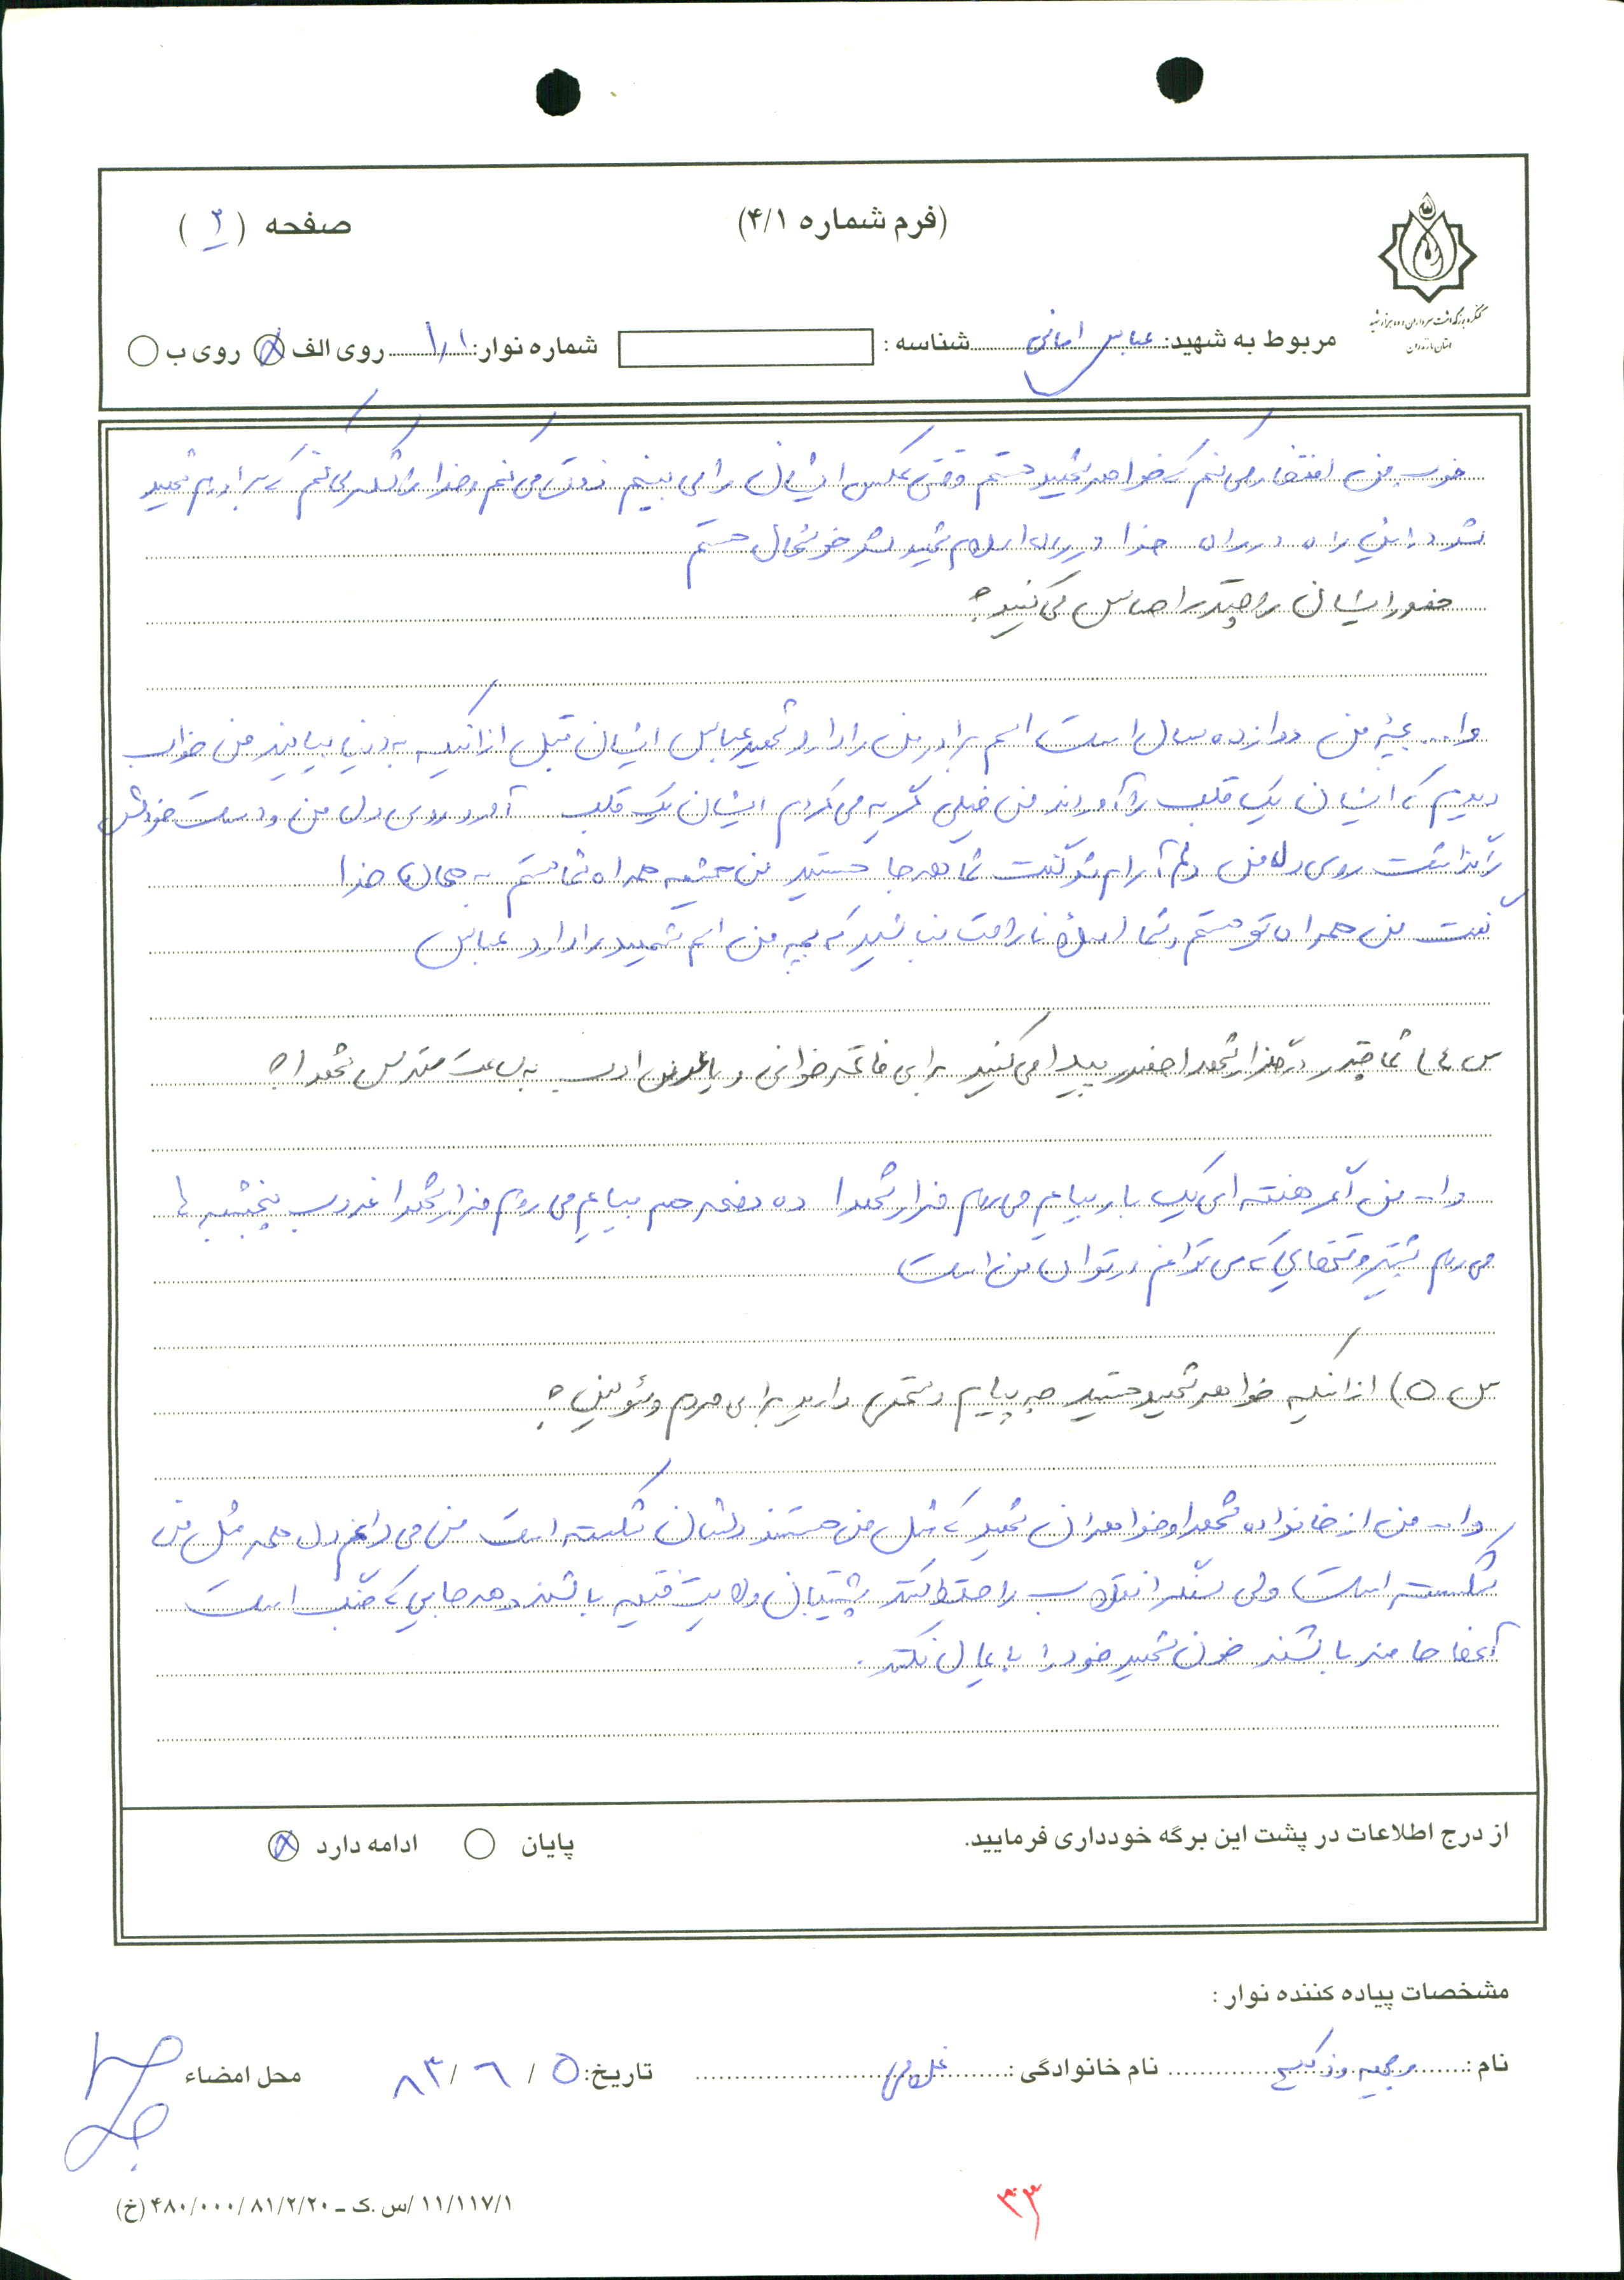 (فرم شماره ۴/۱)
صفحه (۲)
کنگره بزرگداشت سرداران و ده هزار شهید
استان مازندران
مربوط به شهید: عباس امانی شناسه : شماره نوار: ۱/۱ روی الف روی ب
خوب من افتخار می کنم که خواهر شهید هستم وقتی عکس ایشان را می بینم ذوق می کنم و خدا را شکر می کنم که برادرم شهید
شد در این راه در راه خدا در راه اسلام شهید شد خوشحال هستم
حضور ایشان را چقدر احساس می کنید؟
و ا... بچه من دوازده سال است اسم برادر من را دارد شهید عباس ایشان قبل از اینکه به دنیا بیایند من خواب
دیدم که ایشان یک قلب را آوردند من خیلی گریه می کردم ایشان یک قلب آورد روی دل من و دست خودش
را گذاشت روی دل من دلم آرام شد گفت شما هر جا هستید من همیشه همراه شما هستم به همان خدا
گفت من همراه تو هستم و شما اصلاً ناراحت نباشید که بچه من اسم شهید را دارد عباس
س ۴) شما چقدر در مزار شهدا حضور پیدا می کنید برای فاتحه خوانی و یا عرض ادب به ساحت مقدس شهدا؟
و ا... من اگر هفته ای یک بار بیایم می روم مزار شهدا ده دفعه هم بیایم می روم مزار شهدا غروب پنجشنبه ها
می روم بیشتر وقتهایی که می توانم در توان من است
س ۵) از اینکه خواهر شهید هستید چه پیام و سخنی دارید برای مردم و مسئولین؟
و ا... من از خانواده شهدا و خواهران شهید که مثل من هستند دلشان شکسته است من می دانم دل همه مثل من
شکسته است ولی سنگر انقلاب را حفظ کنند پشتیبان ولایت فقیه باشند و هر جایی که جنگ است
آنها حاضر باشند خون شهید خود را پایمال نکنند.
از درج اطلاعات در پشت این برگه خودداری فرمایید.
پایان ادامه دارد
مشخصات پیاده کننده نوار :
نام : نام خانوادگی : غلامی تاریخ: ۵ / ۶ / ۸۳ محل امضاء
۳۳
۱۱/۱۱۷/۱ /س .ک ـ ۴۸۰/۰۰۰/۸۱/۲/۲۰ (خ)